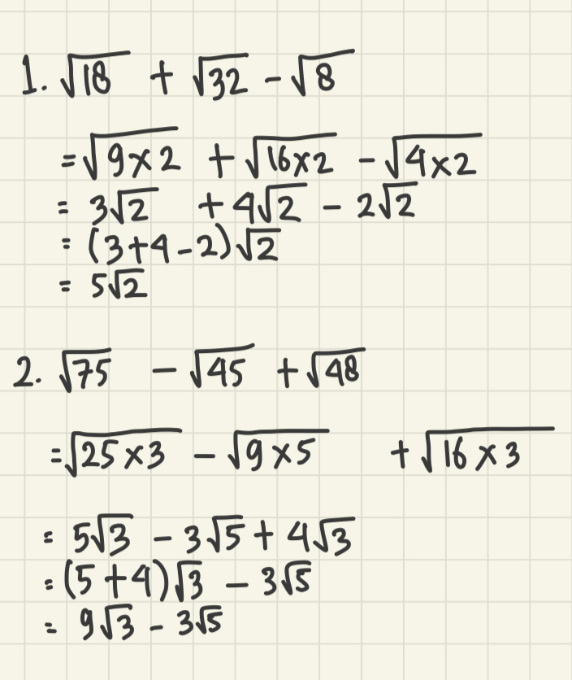 1. √18 + √32 - √8
= √9×2 + √16×2 - √4×2
= 3√2 + 4√2 - 2√2
= (3+4-2)√2
= 5√2
2. √75 - √45 + √48
= √25×3 - √9×5 + √16×3
= 5√3 - 3√5 + 4√3
= (5+4)√3 - 3√5
= 9√3 - 3√5